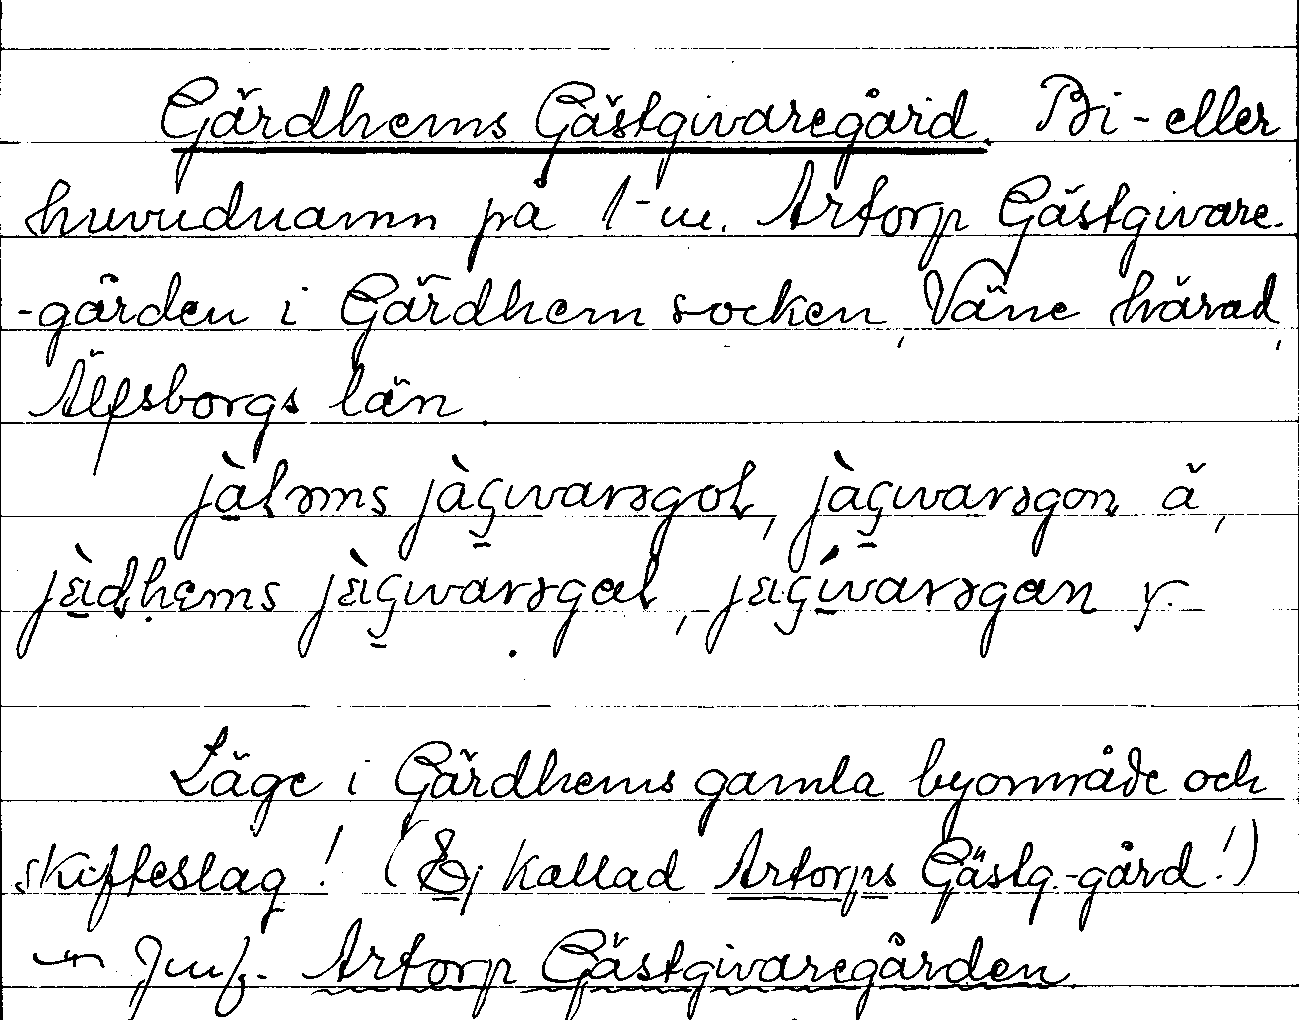 Gärdhems Gästgivaregård. Bi- eller
huvudnamn på 1-m. Artorp Gästgivare-
-gården i Gärdhem socken, Väne härad,
Älfsborgs län.
jàləms jàçwarəgol, jàçwarəgon ă,
jèdhems jèçwarəgal, jèçívarəgan y.
Läge i Gärdhems gamla byområde och
skifteslag! (Ej kallad Artorps Gästg.-gård!)
Jmf. Artorp Gästgivaregården.